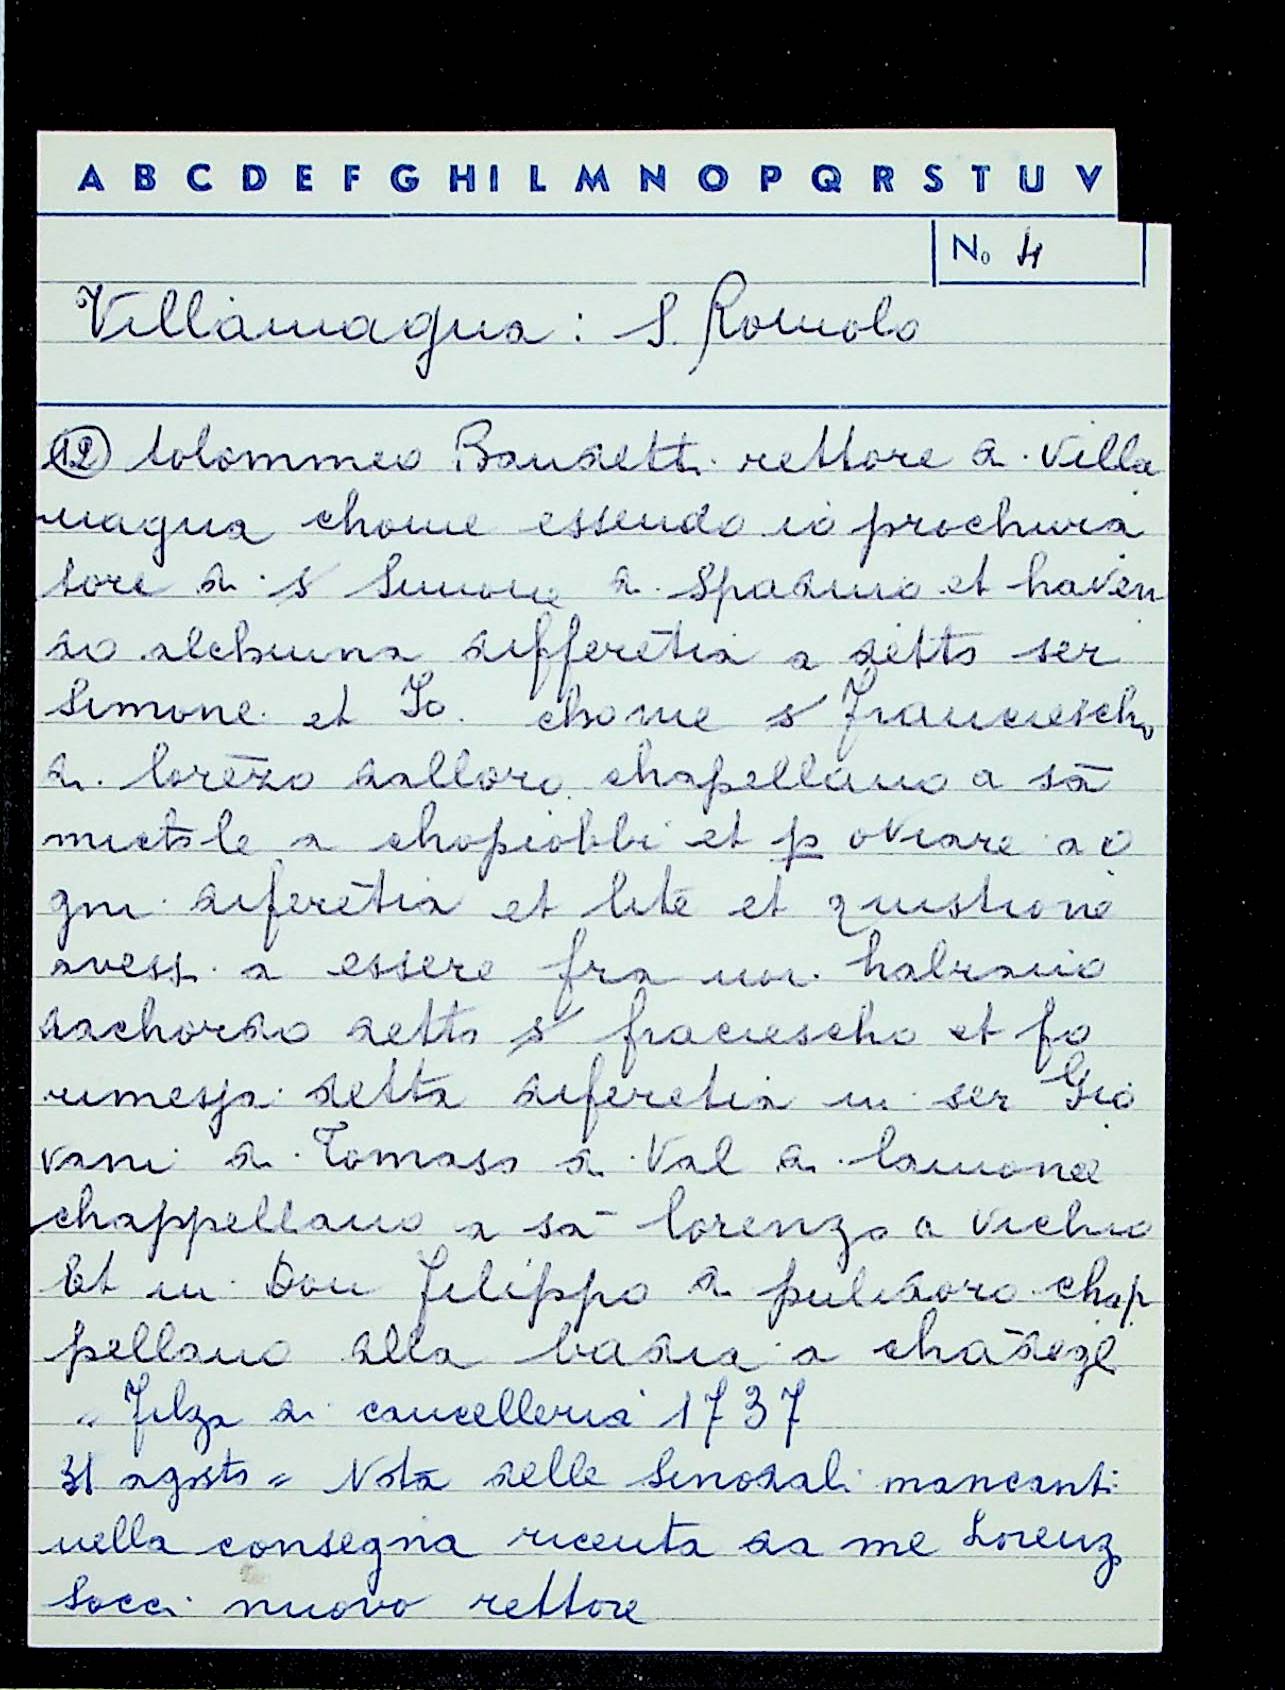 A B C D E F G H I L M N O P Q R S T U V
No 4
Villamagna: S. Romolo
12 tolommeo Bandetti rettore di Villa
magna chome essendo io prochura
tore di s Simone di Spadino et haven
do alchuna differētia a detto ser
Simone et Io. chome s Franciescho
di lorēzo dalloro chapellano a sā
michele a chopiobbi et p oviare ao
gni diferētia et lite et quistione
avessi a essere fra noi habiano
dachordo detto s fraciescho et fo
rimessa detta diferetia in ser Gio
vani di Tomaso di Val di lamona
chappellano a sā lorenzo a vichio
Et in Don Filippo di pulidoro chap
pellano alla badia a
" Filza di cancelleria 1737
31 agosto " Nota delle Sinodali mancanti
nella consegna riceuta da me Lorenzo
Socci nuovo rettore